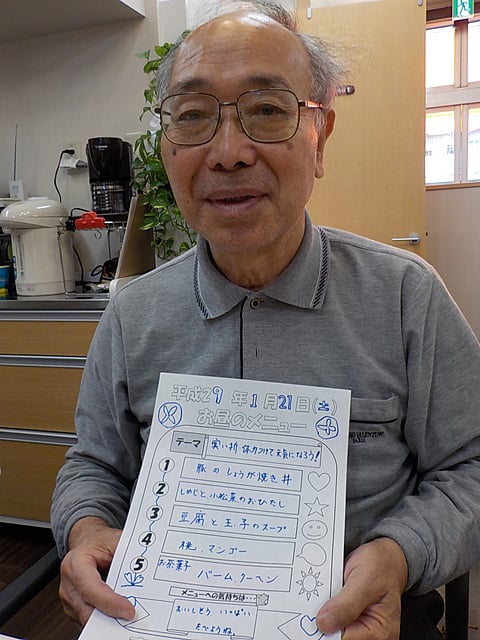 平成29年1月21日(土)
お昼のメニュー
テーマ 寒い折 体力つけて元気になろう!
1 豚のしょうが焼き丼
2 しめじと小松菜のおひたし
3 豆腐と玉子のスープ
4 桃、マンゴー
5 お茶菓子
バームクーヘン
メニューへの気持ちは…
おいしそう いっぱい
たべようね。